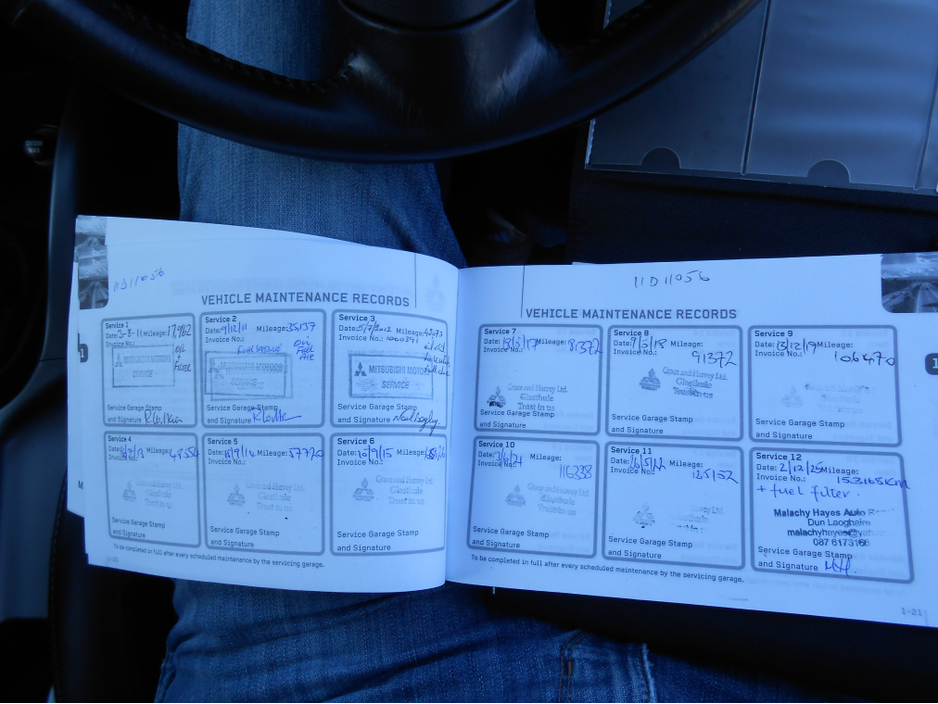 11D11056
VEHICLE MAINTENANCE RECORDS
Service 1
Date: 3-8-11 Mileage: 17,962
Invoice No.:
OIL
+
FUEL
SERVICE
Service Garage Stamp
and Signature
Service 2
Date: 9/12/11 Mileage: 35,137
Invoice No.:
OIL
FUEL
AIR
Service Garage Stamp
and Signature
Service 3
Date: 5/7/2012 Mileage:
Invoice No.:
MITSUBISHI MOTORS
SERVICE
Service Garage Stamp
and Signature
Service 4
Date: Mileage:
Invoice No.:
Service Garage Stamp
and Signature
Service 5
Date: Mileage: 57770
Invoice No.:
Grace and Harvey Ltd.
Glasthule
Trust in us
Service Garage Stamp
and Signature
Service 6
Date: 10/9/15 Mileage:
Invoice No.:
Grace and Harvey Ltd.
Glasthule
Trust in us
Service Garage Stamp
and Signature
To be completed in full after every scheduled maintenance by the servicing garage.
11D11056
VEHICLE MAINTENANCE RECORDS
Service 7
Date: Mileage: 81372
Invoice No.:
Grace and Harvey Ltd.
Glasthule
Trust in us
Service Garage Stamp
and Signature
Service 8
Date: Mileage:
Invoice No.: 91372
Grace and Harvey Ltd.
Glasthule
Trust in us
Service Garage Stamp
and Signature
Service 9
Date: 13/12/19 Mileage:
Invoice No.: 106470
Service Garage Stamp
and Signature
Service 10
Date: Mileage:
Invoice No.: 116238
Grace and Harvey Ltd.
Glasthule
Trust in us
Service Garage Stamp
and Signature
Service 11
Date: Mileage:
Invoice No.: 125152
Service Garage Stamp
and Signature
Service 12
Date: 2/12/25 Mileage:
Invoice No.: 153165km
+ fuel filter.
Malachy Hayes Auto
Dun Laoghaire
087 6173168
Service Garage Stamp
and Signature
To be completed in full after every scheduled maintenance by the servicing garage.
1-21